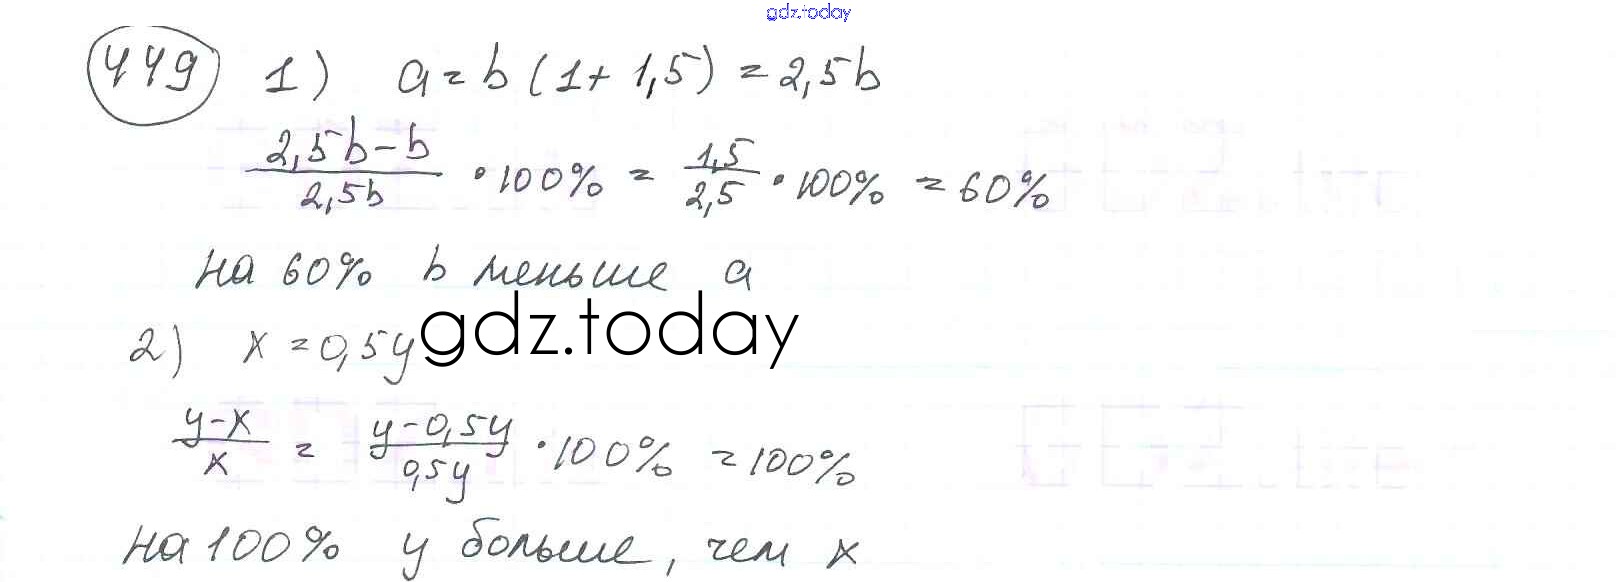 gdz.today
449 1) a = b (1 + 1,5) = 2,5b
2,5b - b / 2,5b · 100% = 1,5 / 2,5 · 100% = 60%
на 60% b меньше a
2) x = 0,5y
gdz.today
y - x / x = y - 0,5y / 0,5y · 100% = 100%
на 100% y больше, чем x